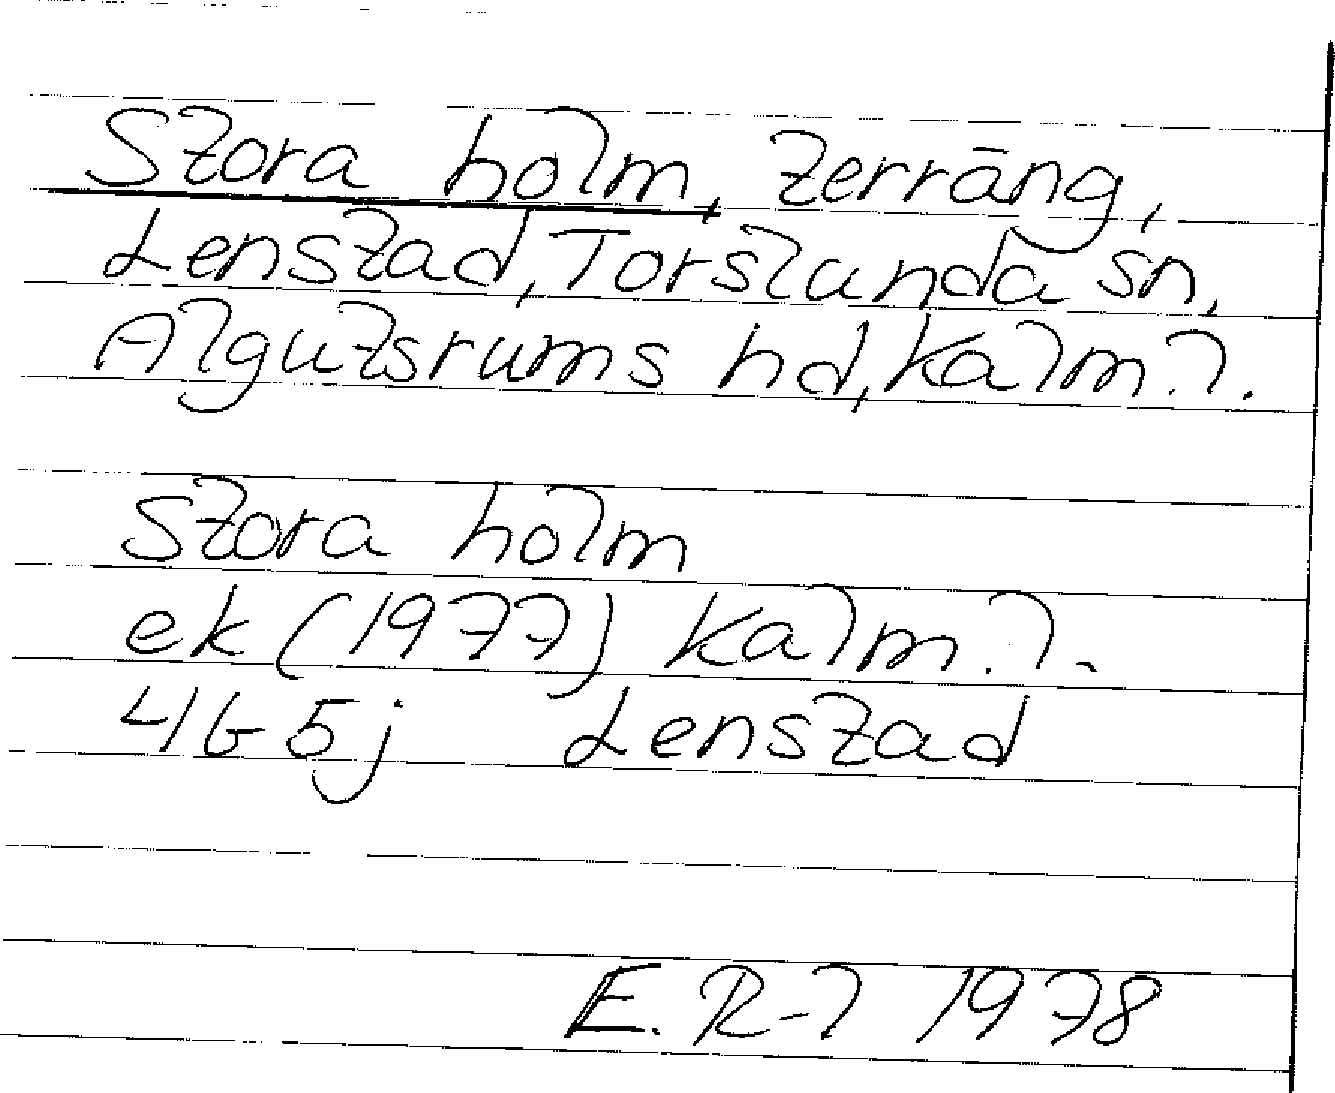 Stora holm, terräng,
Lenstad, Torslunda sn,
Algutsrums hd, Kalm.l.
Stora holm
ek (1977) Kalm.l.
4G5j Lenstad
E. R-l 1978